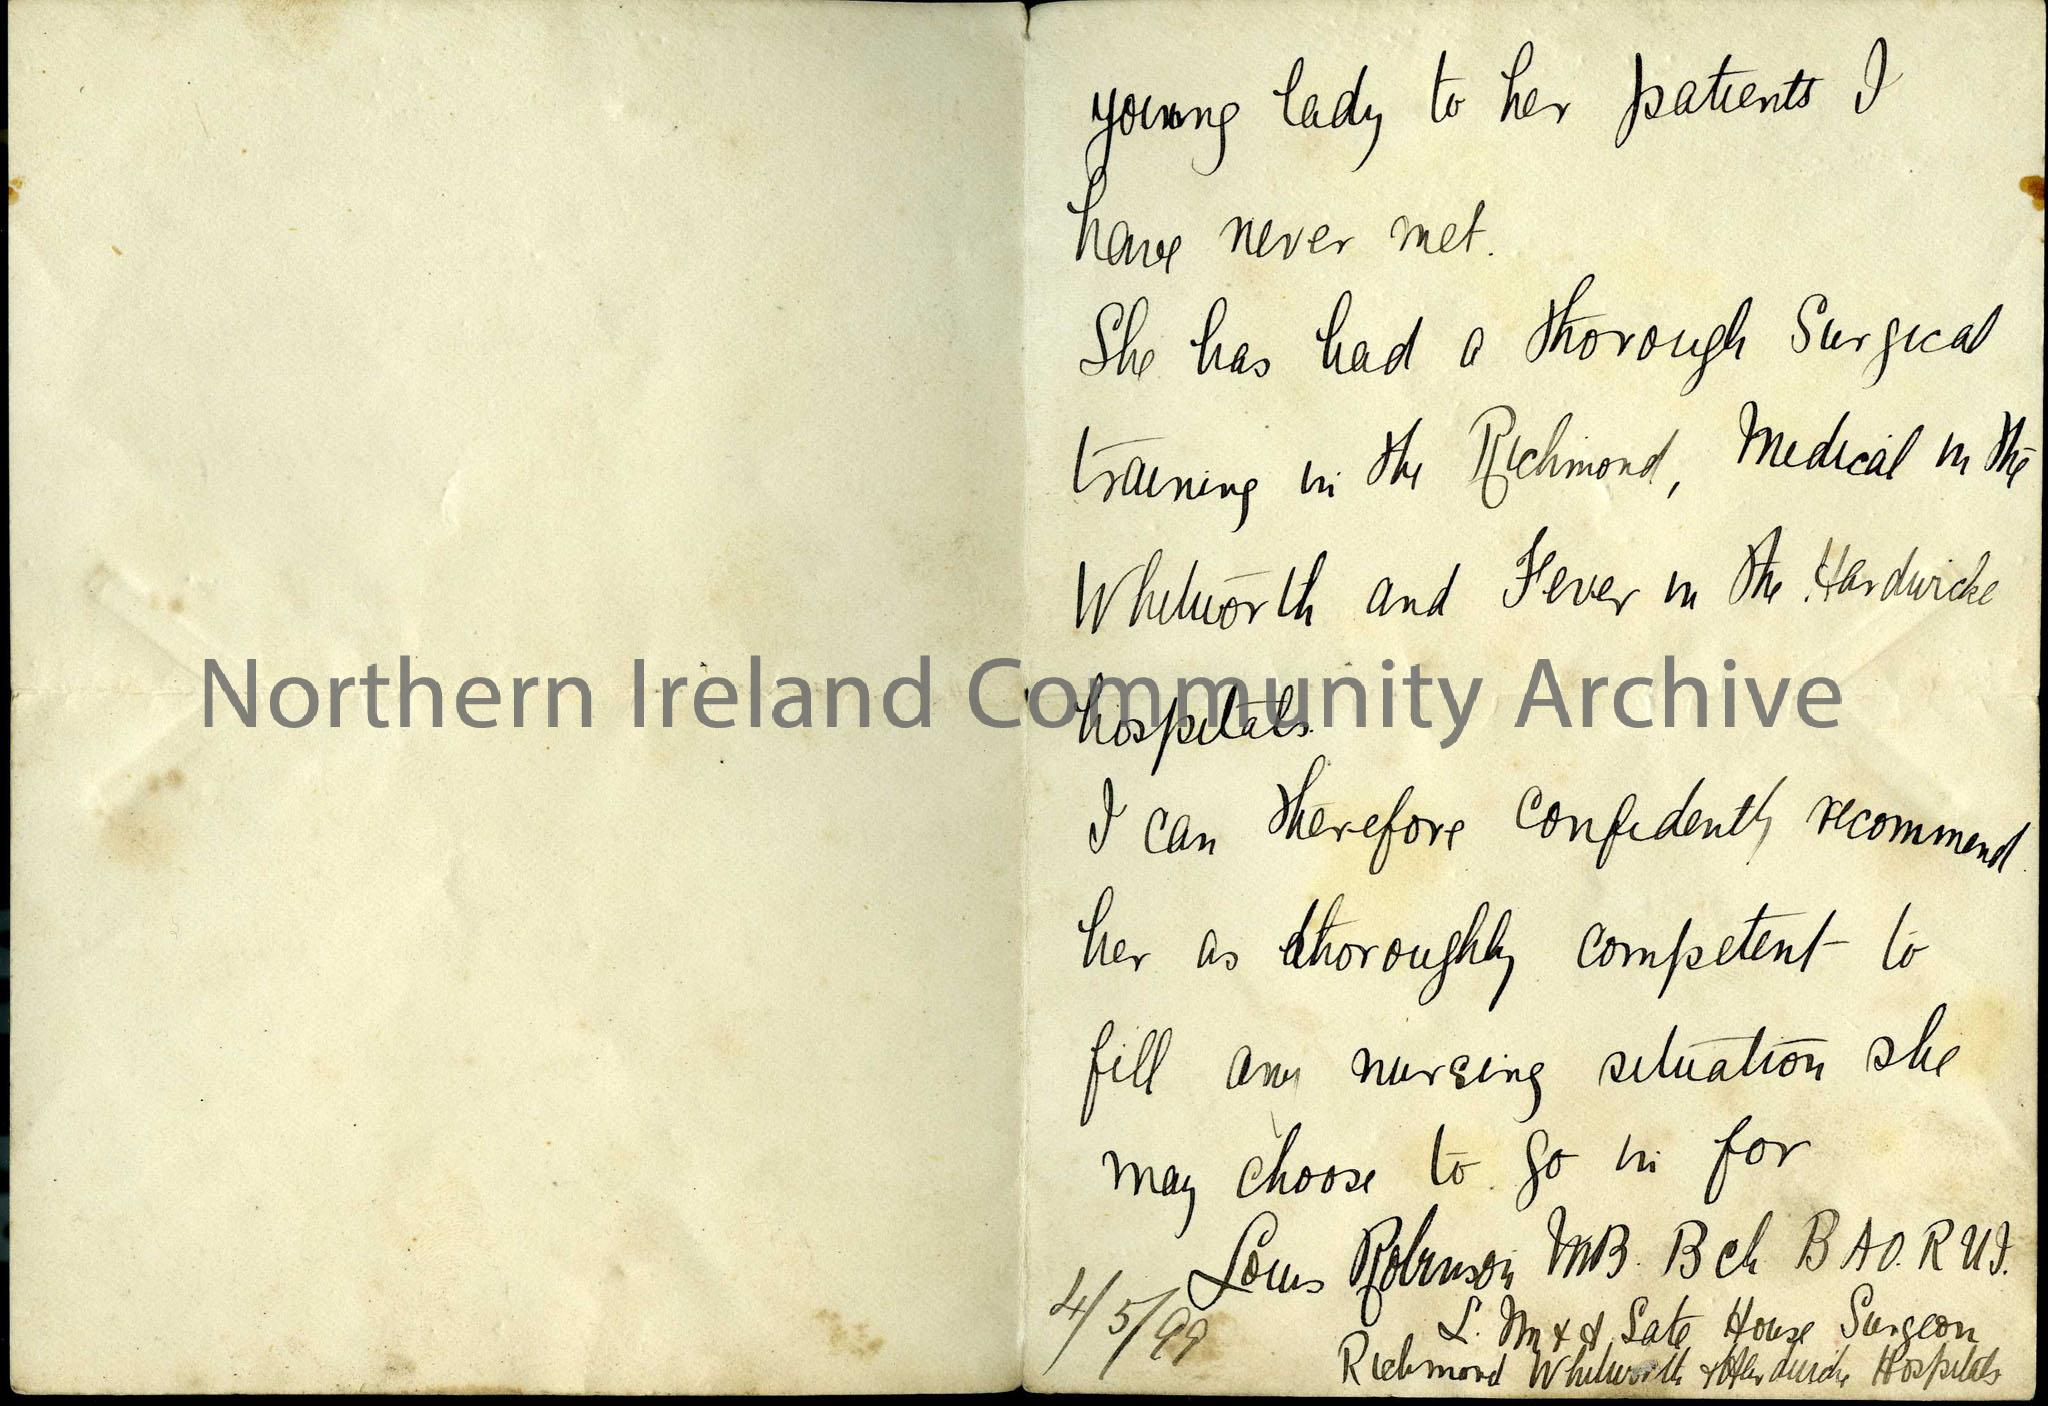 young lady to her patients I
have never met.
She has had a thorough Surgical
training in the Richmond, Medical in the
Whitworth and Fever in the Hardwicke
Northern Ireland Community Archive
hospitals.
I can therefore confidently recommend
her as thoroughly competent to
fill any nursing situation she
may choose to go in for
Louis Robinson MB. Bch B A O. R U I.
4/5/99
L. M Late House Surgeon
Richmond Whitworth & Hardwicke Hospitals